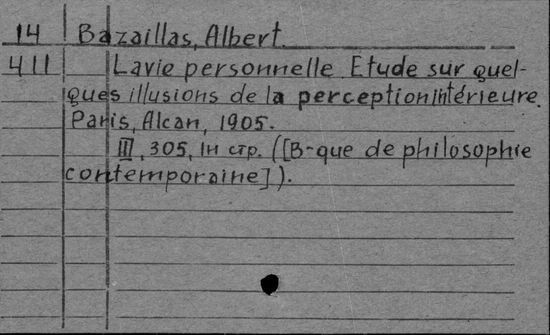 14 Bazaillas, Albert.
411 La vie personnelle. Etude sur quel-
ques illusions de la perception intérieure.
Paris, Alcan, 1905.
III, 305, 1н стр. ([B-que de philosophie
contemporaine]).